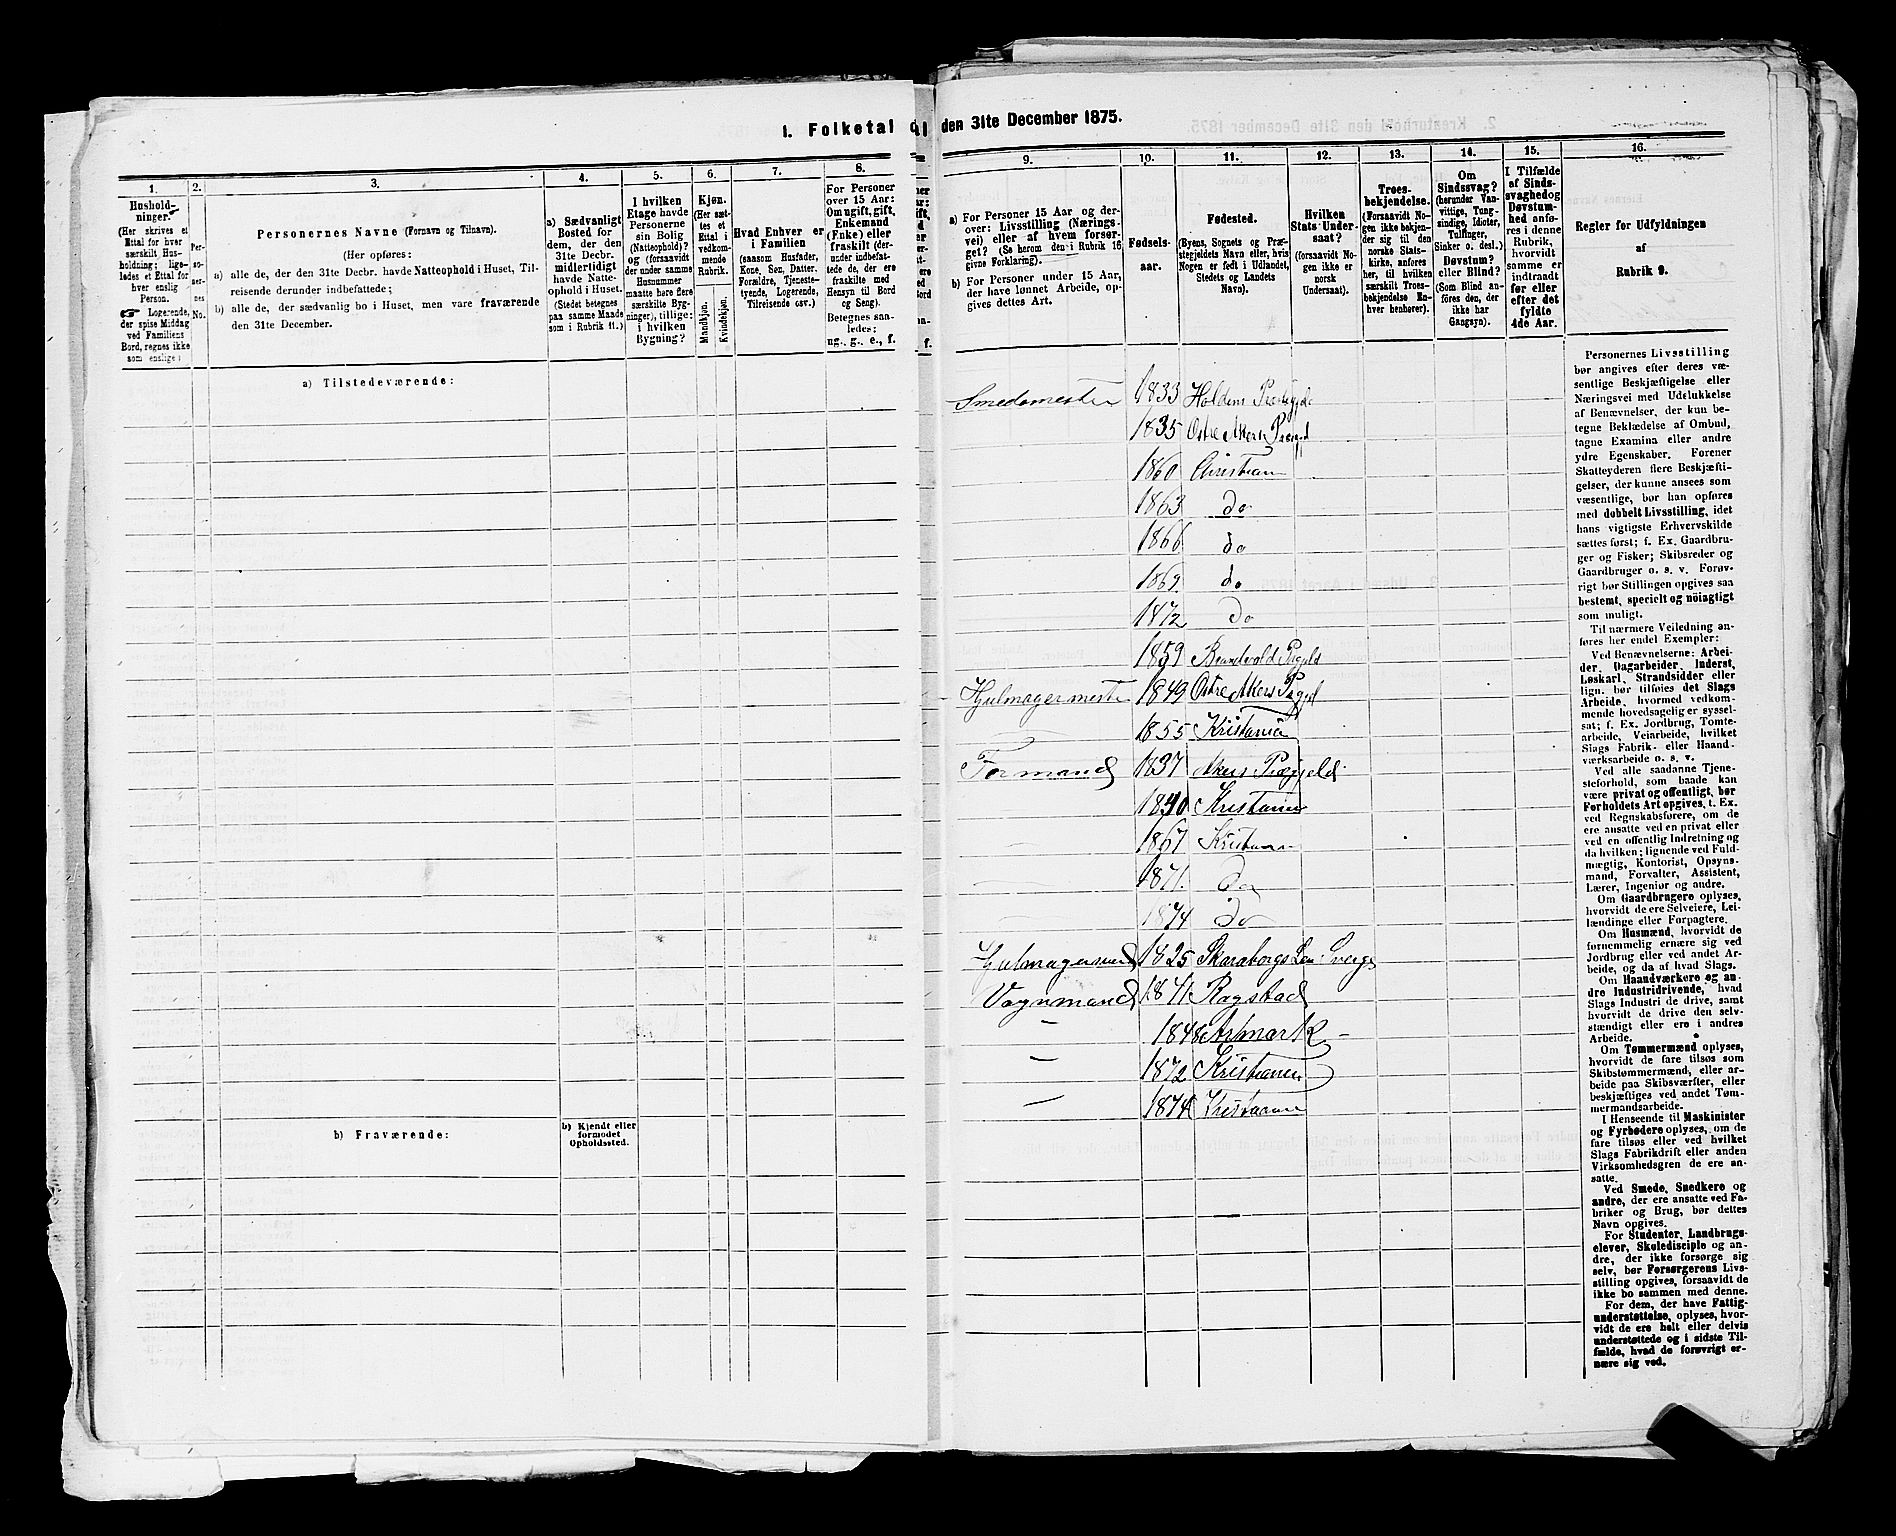 1. Folketal d
den 31te December 1875.
1.
2.
3.
4.
5.
6.
7.
8.
Hushold-
ninger.
(Her skrives et
Ettal for hver
særskilt Hus-
holdning; lige-
ledes et Ettal for
hver enslig
Person.
☞ Logerende,
der spise Middag
ved Familiens
Bord, regnes ikke
som enslige)
Per-
so-
ner-
nes
No.
Personernes Navne (Fornavn og Tilnavn).
(Her opføres:
a) alle de, der den 31te Decbr. havde Natteophold i Huset, Til-
reisende derunder indbefattede;
b) alle de, der sædvanlig bo i Huset, men vare fraværende
den 31te December.
a) Sædvanligt
Bosted for
dem, der den
31te Decbr.
midlertidigt
havde Natte-
ophold i Huset.
(Stedet betegnes
paa samme Maade
som i Rubrik 11.)
I hvilken
Etage havde
Personerne
sin Bolig
(Natteophold)?
og (forsaavidt
der under samme
Husnummer
maatte høre flere
særskilte Byg-
ninger), tillige:
i hvilken
Bygning?
Kjøn.
(Her sæt-
tes et
Ettal i
vedkom-
mende
Rubrik.
Mandkjøn.
Kvindekjøn.
Hvad Enhver er
i Familien
(saasom Husfader,
Kone, Søn, Datter,
Forældre, Tjeneste-
tyende, Logerende,
Tilreisende osv.)
For Personer
over 15 Aar:
Om ugift, gift,
Enkemand
(Enke) eller
fraskilt (der-
under indbefat-
tede de, der ere
fraskilte med
Hensyn til Bord
og Seng).
Betegnes saa-
ledes:
ug., g., e., f.
a) Tilstedeværende:
b) Fraværende:
b) Kjendt eller
formodet
Opholdssted.
9.
10.
11.
12.
13.
14.
15.
16.
a) For Personer 15 Aar og der-
over: Livsstilling (Nærings-
vei) eller af hvem forsør-
get? (Se herom den i Rubrik 16
givne Forklaring).
b) For Personer under 15 Aar,
der have lønnet Arbeide, op-
gives dettes Art.
Fødsels-
aar.
Fødested.
(Byens, Sognets og Præ-
stegjeldets Navn eller, hvis
Nogen er født i Udlandet,
Stedets og Landets
Navn).
Hvilken
Stats Under-
saat?
(forsaavidt No-
gen ikke er
norsk
Undersaat).
Troes-
bekjendelse.
(Forsaavidt No-
gen ikke bekjen-
der sig til den
norske Stats-
kirke, anføres
her, til hvilken
særskilt Troes-
bekjendelse En-
hver henhører).
Om
Sindssvag?
(herunder Van-
vittige, Tung-
sindige, Idioter,
Tullinger,
Sinker o. desl.)
Døvstum?
eller Blind?
(Som Blind an-
føres den, der
ikke har
Gangsyn).
I Tilfælde
af Sinds-
svaghed og
Døvstum-
hed anfø-
res i denne
Rubrik,
hvorvidt
samme er
indtraadt
før eller
efter det
fyldte
4de Aar.
Regler for Udfyldningen
af
Rubrik 9.
Smedemester 1833 Holdens
1835 Østre Akers
1860
1863 do
1866 do
1869. do
1872 do
1859
1849 Østre Akers
1855 Kristiania
Formand 1837 Akers Prægjeld
1840 Kristiania
1867
1871. Do
1874 Do
1825 Skaraborgs Len
Vognmand 1841
1848
1872 Kristiania
1874
Personernes Livsstilling
bør angives efter deres væ-
sentlige Beskjæftigelse eller
Næringsvei med Udelukkelse
af Benævnelser, der kun be-
tegne Beklædelse af Ombud,
tagne Examina eller andre
ydre Egenskaber. Forener
Skatteyderen flere Beskjæfti-
gelser, der kunne ansees som
væsentlige, bør han opføres
med dobbelt Livsstilling, idet
hans vigtigste Erhvervskilde
sættes først; f. Ex. Gaardbru-
ger og Fisker; Skibsreder og
Gaardbruger o. s. v. Forøv-
rigt bør Stillingen opgives saa
bestemt, specielt og nöiagtigt
som muligt.
Til nærmere Veiledning an-
føres her endel Exempler:
Ved Benævnelserne: Arbei-
der, Dagarbeider, Inderst,
Løskarl, Strandsidder eller
lign. bør tilføies det Slags
Arbeide, hvormed vedkom-
mende hovedsagelig er syssel-
sat; f. Ex. Jordbrug, Tomte-
arbeide, Veiarbeide, hvilket
Slags Fabrik- eller Haand-
værksarbeide o. s. v.
Ved alle saadanne Tjene-
steforhold, som baade kan
være privat og offentligt, bør
Forholdets Art opgives, t. Ex.
ved Regnskabsførere, om de
ere ansatte ved en privat eller
ved en offentlig Indretning og
da hvilken; lignende ved Fuld-
mægtig, Kontorist, Opsyns-
mand, Forvalter, Assistent,
Lærer, Ingeniør og andre.
Om Gaardbrugere oplyses,
hvorvidt de ere Selveiere, Lei-
lændinge eller Forpagtere.
Om Husmænd, hvorvidt de
fornemmelig ernære sig ved
Jordbrug eller ved andet Ar-
beide, og da af hvad Slags.
Om Haandværkere og an-
dre Industridrivende, hvad
Slags Industri de drive, samt
hvorvidt de drive den selv-
stændigt eller ere i andres
Arbeide.
Om Tømmermænd oplyses,
hvorvidt de fare tilsøs som
Skibstømmermænd, eller ar-
beide paa Skibsværfter, eller
beskjæftiges ved andet Tøm-
mermandsarbeide.
I Henseende til Maskinister
og Fyrbødere oplyses, om de
fare tilsøs eller ved hvilket
Slags Fabrikdrift eller anden
Virksomhedsgren de ere an-
satte.
Ved Smede, Snedkere og
andre, der ere ansatte ved Fa-
briker og Brug, bør dettes
Navn opgives.
For Studenter, Landbrugs-
elever, Skoledisciple og an-
dre, der ikke forsørge sig
selv, bør Forsørgerens Livs-
stilling opgives, forsaavidt de
ikke bo sammen med denne.
For dem, der have Fattig-
understøttelse, oplyses, hvor-
vidt de ere helt eller delvis
understøttede og i sidste Til-
fælde, hvad de forøvrigt er-
nære sig ved.